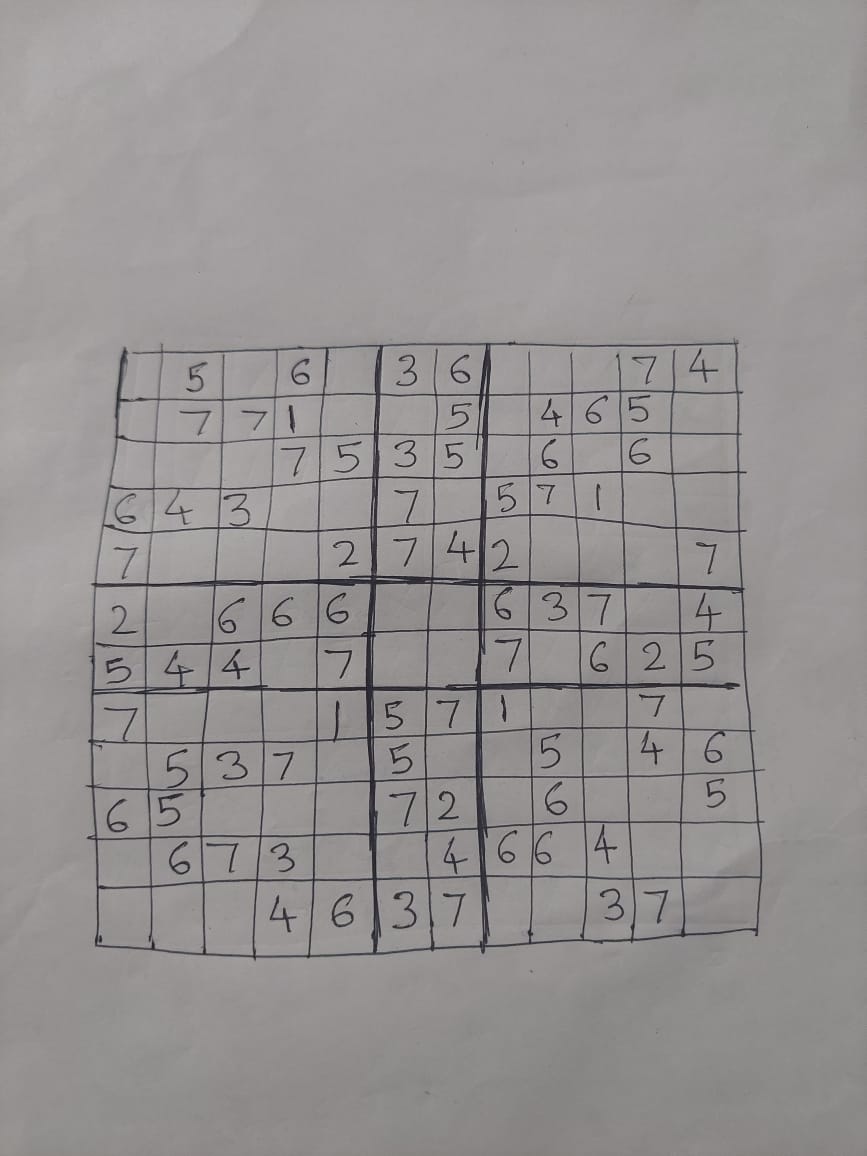 5 6 3 6 7 4
7 7 1 5 4 6 5
7 5 3 5 6 6
6 4 3 7 5 7 1
7 2 7 4 2 7
2 6 6 6 6 3 7 4
5 4 4 7 7 6 2 5
7 1 5 7 1 7
5 3 7 5 5 4 6
6 5 7 2 6 5
6 7 3 4 6 6 4
4 6 3 7 3 7